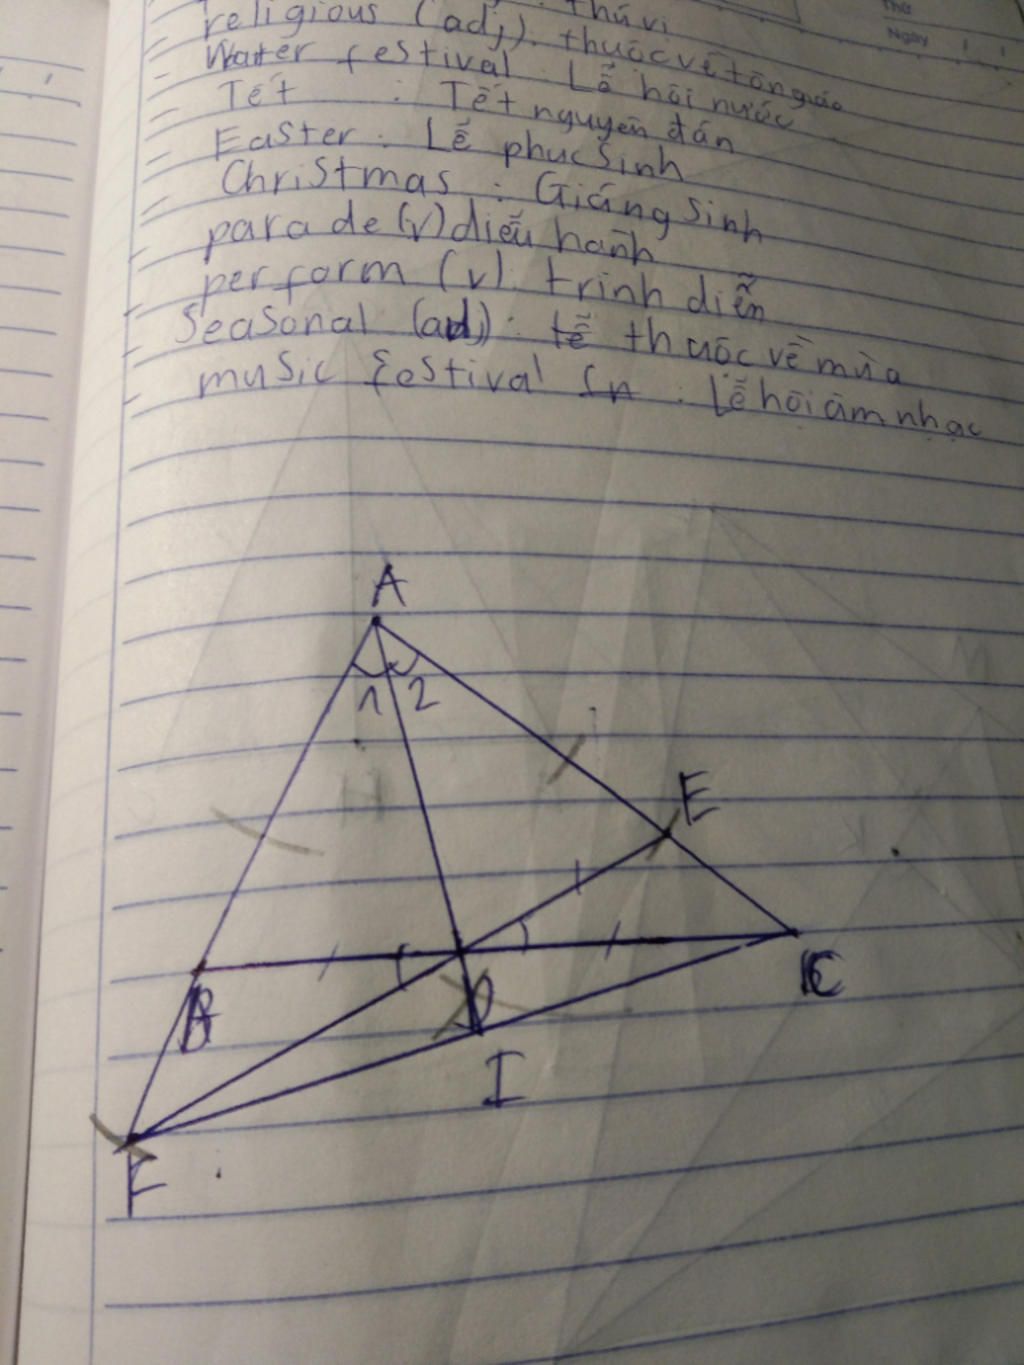 thú vị
Thứ
Ngày
- religious (adj). thuộc về tôn giáo
- Water festival. Lễ hội nước
- Tết : Tết nguyên đán
- Easter : Lễ phục sinh
- Christmas : Giáng Sinh
- parade (v) diễu hành
- perform (v). trình diễn
- Seasonal (adj): thuộc về mùa
- music festival : Lễ hội âm nhạc
A
1 2
E
B
D
C
I
F